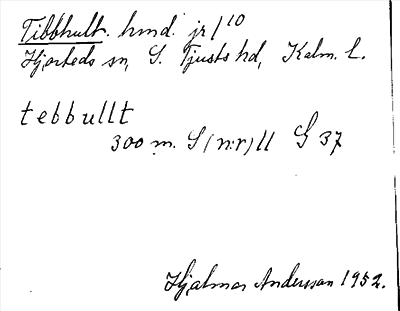 Tibbhult. hmd. jr/10
Hjorteds sn, S. Tjusts hd, Kalm. l.
tebbullt
300 m. S (n:r) 11 G 37
Hjalmar Andersson 1952.